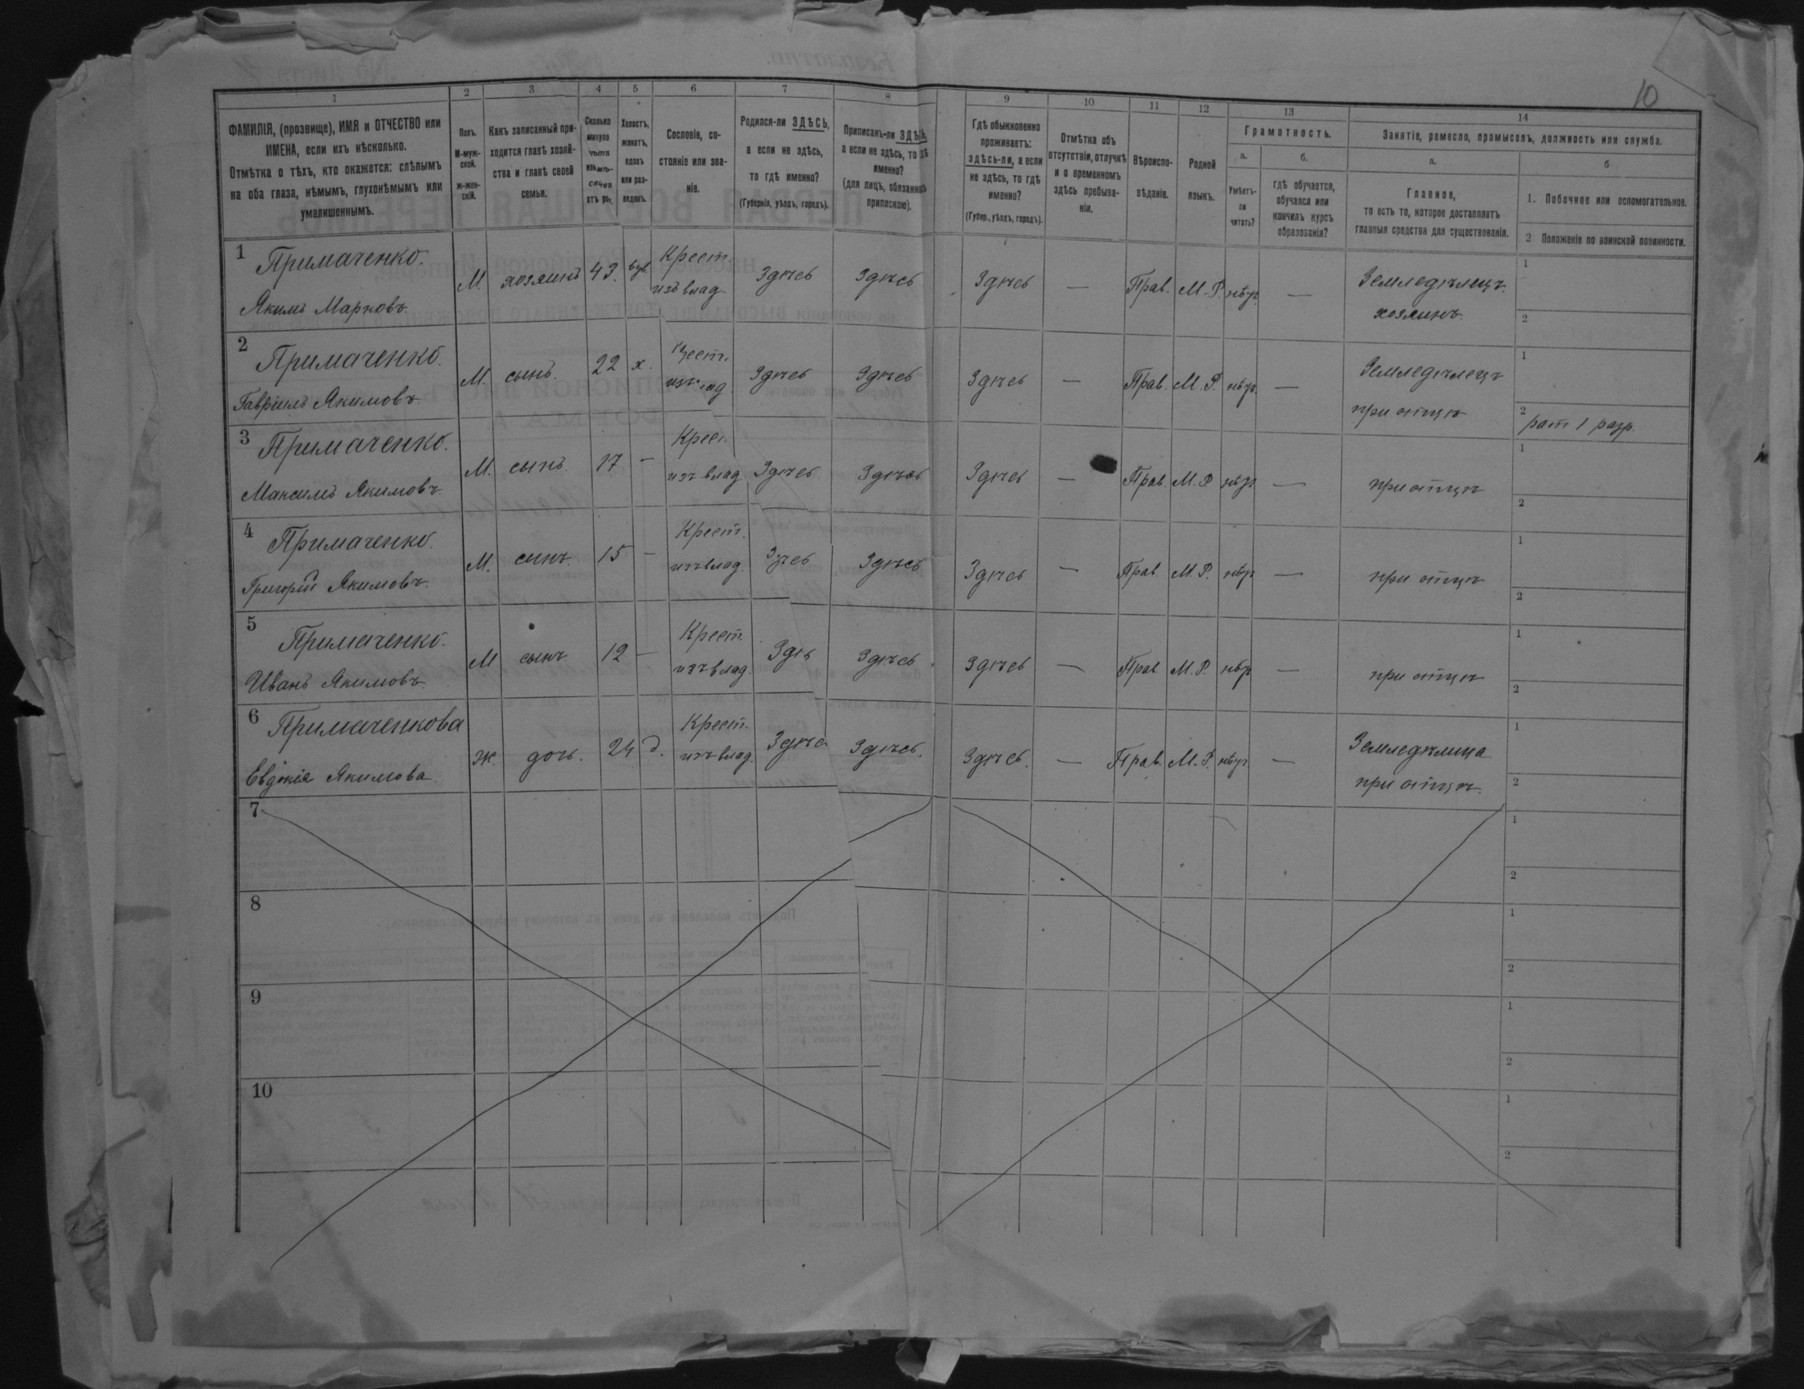 10
1 2 3 4 5 6 7 8 9 10 11 12 13 14
ФАМИЛІЯ, (прозвище), ИМЯ и ОТЧЕСТВО или
ИМЕНА, если ихъ нѣсколько.
Отмѣтка о тѣхъ, кто окажется: слѣпымъ
на оба глаза, нѣмымъ, глухонѣмымъ или
умалишеннымъ.
Полъ.
М-муж-
ской.
Ж-жен-
скій.
Какъ записанный при-
ходится главѣ хозяй-
ства и главѣ своей
семьи.
Сколько
минуло
лѣтъ
или мѣ-
сяцевъ
отъ ро,
Холостъ,
женатъ,
вдовъ
или раз-
веденъ.
Сословіе, со-
стояніе или зва-
ніе.
Родился-ли ЗДѢСЬ,
а если не здѣсь,
то гдѣ именно?
(Губернія, уѣздъ, городъ).
Приписанъ-ли ЗДѢСЬ,
а если не здѣсь, то гдѣ
именно?
(для лицъ, обязанныхъ
припискою).
Гдѣ обыкновенно
проживаетъ:
здѣсь-ли, а если
не здѣсь, то гдѣ
именно?
(Губер., уѣздъ, городъ).
Отмѣтка объ
отсутствіи, отлучкѣ
и о временномъ
здѣсь пребыва-
ніи.
Вѣроиспо-
вѣданіе.
Родной
языкъ.
Грамотность.
а.
Умѣетъ-
ли
читать?
б.
гдѣ обучается,
обучался или
кончилъ курсъ
образованія?
Занятіе, ремесло, промыселъ, должность или служба.
а.
Главное,
то есть то, которое доставляетъ
главныя средства для существованія.
б
1. Побочное или вспомогательное.
2 Положеніе по воинской повинности.
1 Примаченко. М. хозяинъ 43. вд. Крест. Здѣсь Здѣсь Здѣсь — Прав. М. Р. нѣтъ — Земледѣлецъ 1
Якимъ Марковъ изъ влад. хозяинъ 2
2 Примаченко М. сынъ 22 х. Крест. Здѣсь Здѣсь Здѣсь — Прав. М. Р. нѣтъ — Земледѣлецъ 1
Гавріилъ Якимовъ изъ влад. при отцѣ 2 рат 1 разр.
3 Примаченко. М. сынъ 17 — Крест. Здѣсь Здѣсь Здѣсь — Прав. М. Р. нѣтъ — 1
Максимъ Якимовъ изъ влад при отцѣ 2
4 Примаченко. М. сынъ 15 — Крест. Здѣсь Здѣсь Здѣсь — Прав. М. Р. нѣтъ — 1
Григорій Якимовъ изъ влад. при отцѣ 2
5 Примаченко. М сынъ 12 — Крест. Здѣсь Здѣсь Здѣсь — Прав М. Р. нѣтъ — 1
Иванъ Якимовъ изъ влад. при отцѣ 2
6 Примаченкова Ж. дочь. 24 д. Крест. Здѣсь Здѣсь. Здѣсь. — Прав. М. Р. нѣтъ — Земледѣлица 1
Евдокія Якимова изъ влад. при отцѣ. 2
7 1
2
8 1
2
9 1
2
10 1
2